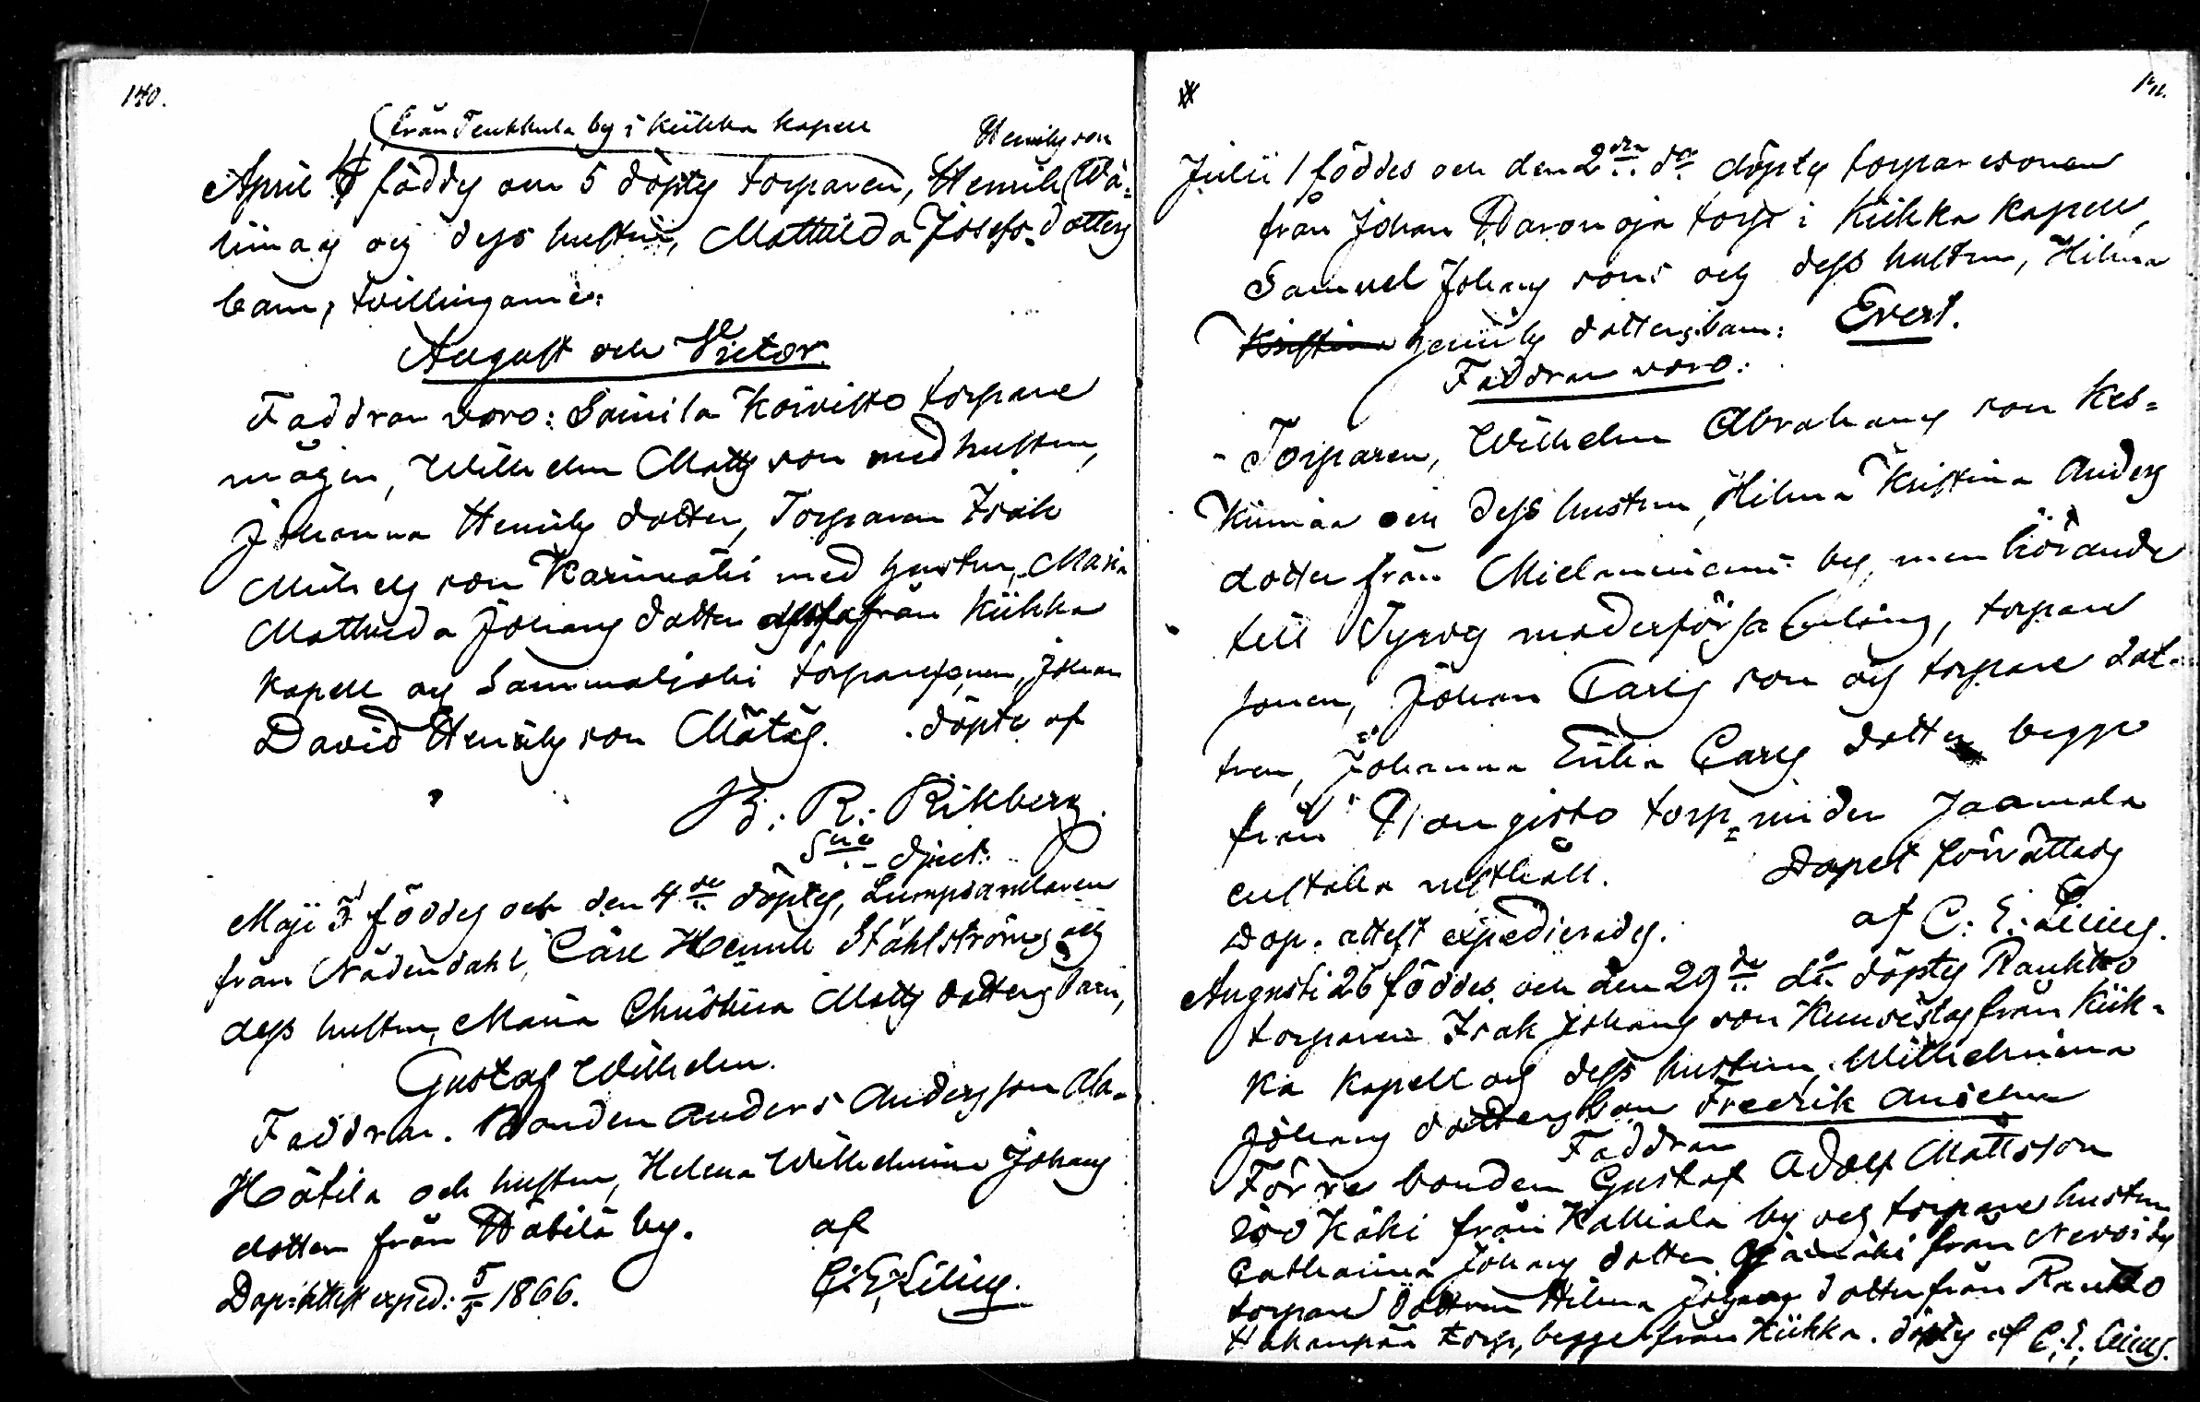 140.
(från Tenkkula by i Kiikka Kapell
Henriks son
April 4 föddes och 5 döptes torparen, Henrik Wä-
limag och dess hustru, Mathilda Josefs dotters
barn; tvillingarne:
August och Victor.
Faddrar woro: Koivisto torpare
mågen, Wilhelm Matts son med hustru,
Johanna Henriks dotter, Torparen Isak
Michels son Karimäki med hustru, Maria
Mathilda Johans dotter från Kiikka
Kapell och Sammaljoki torparesonen, Johan
David Henriks son Mätäs. döpte af
B: R: Rikberg.
Maji 3 föddes och den 4de döptes, Lumpsamlaren
från Nådendahl, Carl Henrik Ståhlströms och
dess hustru, Maria Christina Matts dotters barn,
Gustaf Wilhelm.
Faddrar. Bonden Anders Anders son Ala-
Hätilä och hustru, Helena Wilhelmina Johans
dotter från Hätilä by. af
Dop-attest exped: 5/5 1866. C: E: Lilius.
Julii 1 föddes och den 2dra do döptes torparesonen
från Johan torp i Kiikka Kapell,
Samuel Johans sons och dess hustru, Hilma
Kristina Henriks dotters barn: Evert.
Faddrar woro:
Torparen, Wilhelm Abrahams son Kes-
och dess hustru, Hilma Kristina Anders
dotter från by, men hörande
till Tyrvis moderförsamling, torpare
sonen, Johan Carls son och torpare dot-
tren, Johanna Erika Carls dotter begge
från Hongisto torp under Jaamala
rusthåll. Dopet förrättades
Dop. attest expedierades. af C: E: Lilius.
Augusti 26 föddes och den 29de do döptes Raukko
torparen Isak Johans son från Kiik-
ka Kapell och dess hustru, Wilhelmina
Johans dotters barn Fredrik Anselm
Faddrar
Förre bonden Gustaf Adolf Mattsson
Käki från Kalliala by och torpare hustru
Catharina Johans dotter Ojamäki från
torpare dottren Hilma Johans dotter från Raukko
Hakanpää torp, begge från Kiikka. döptes af C. E. Lilius.